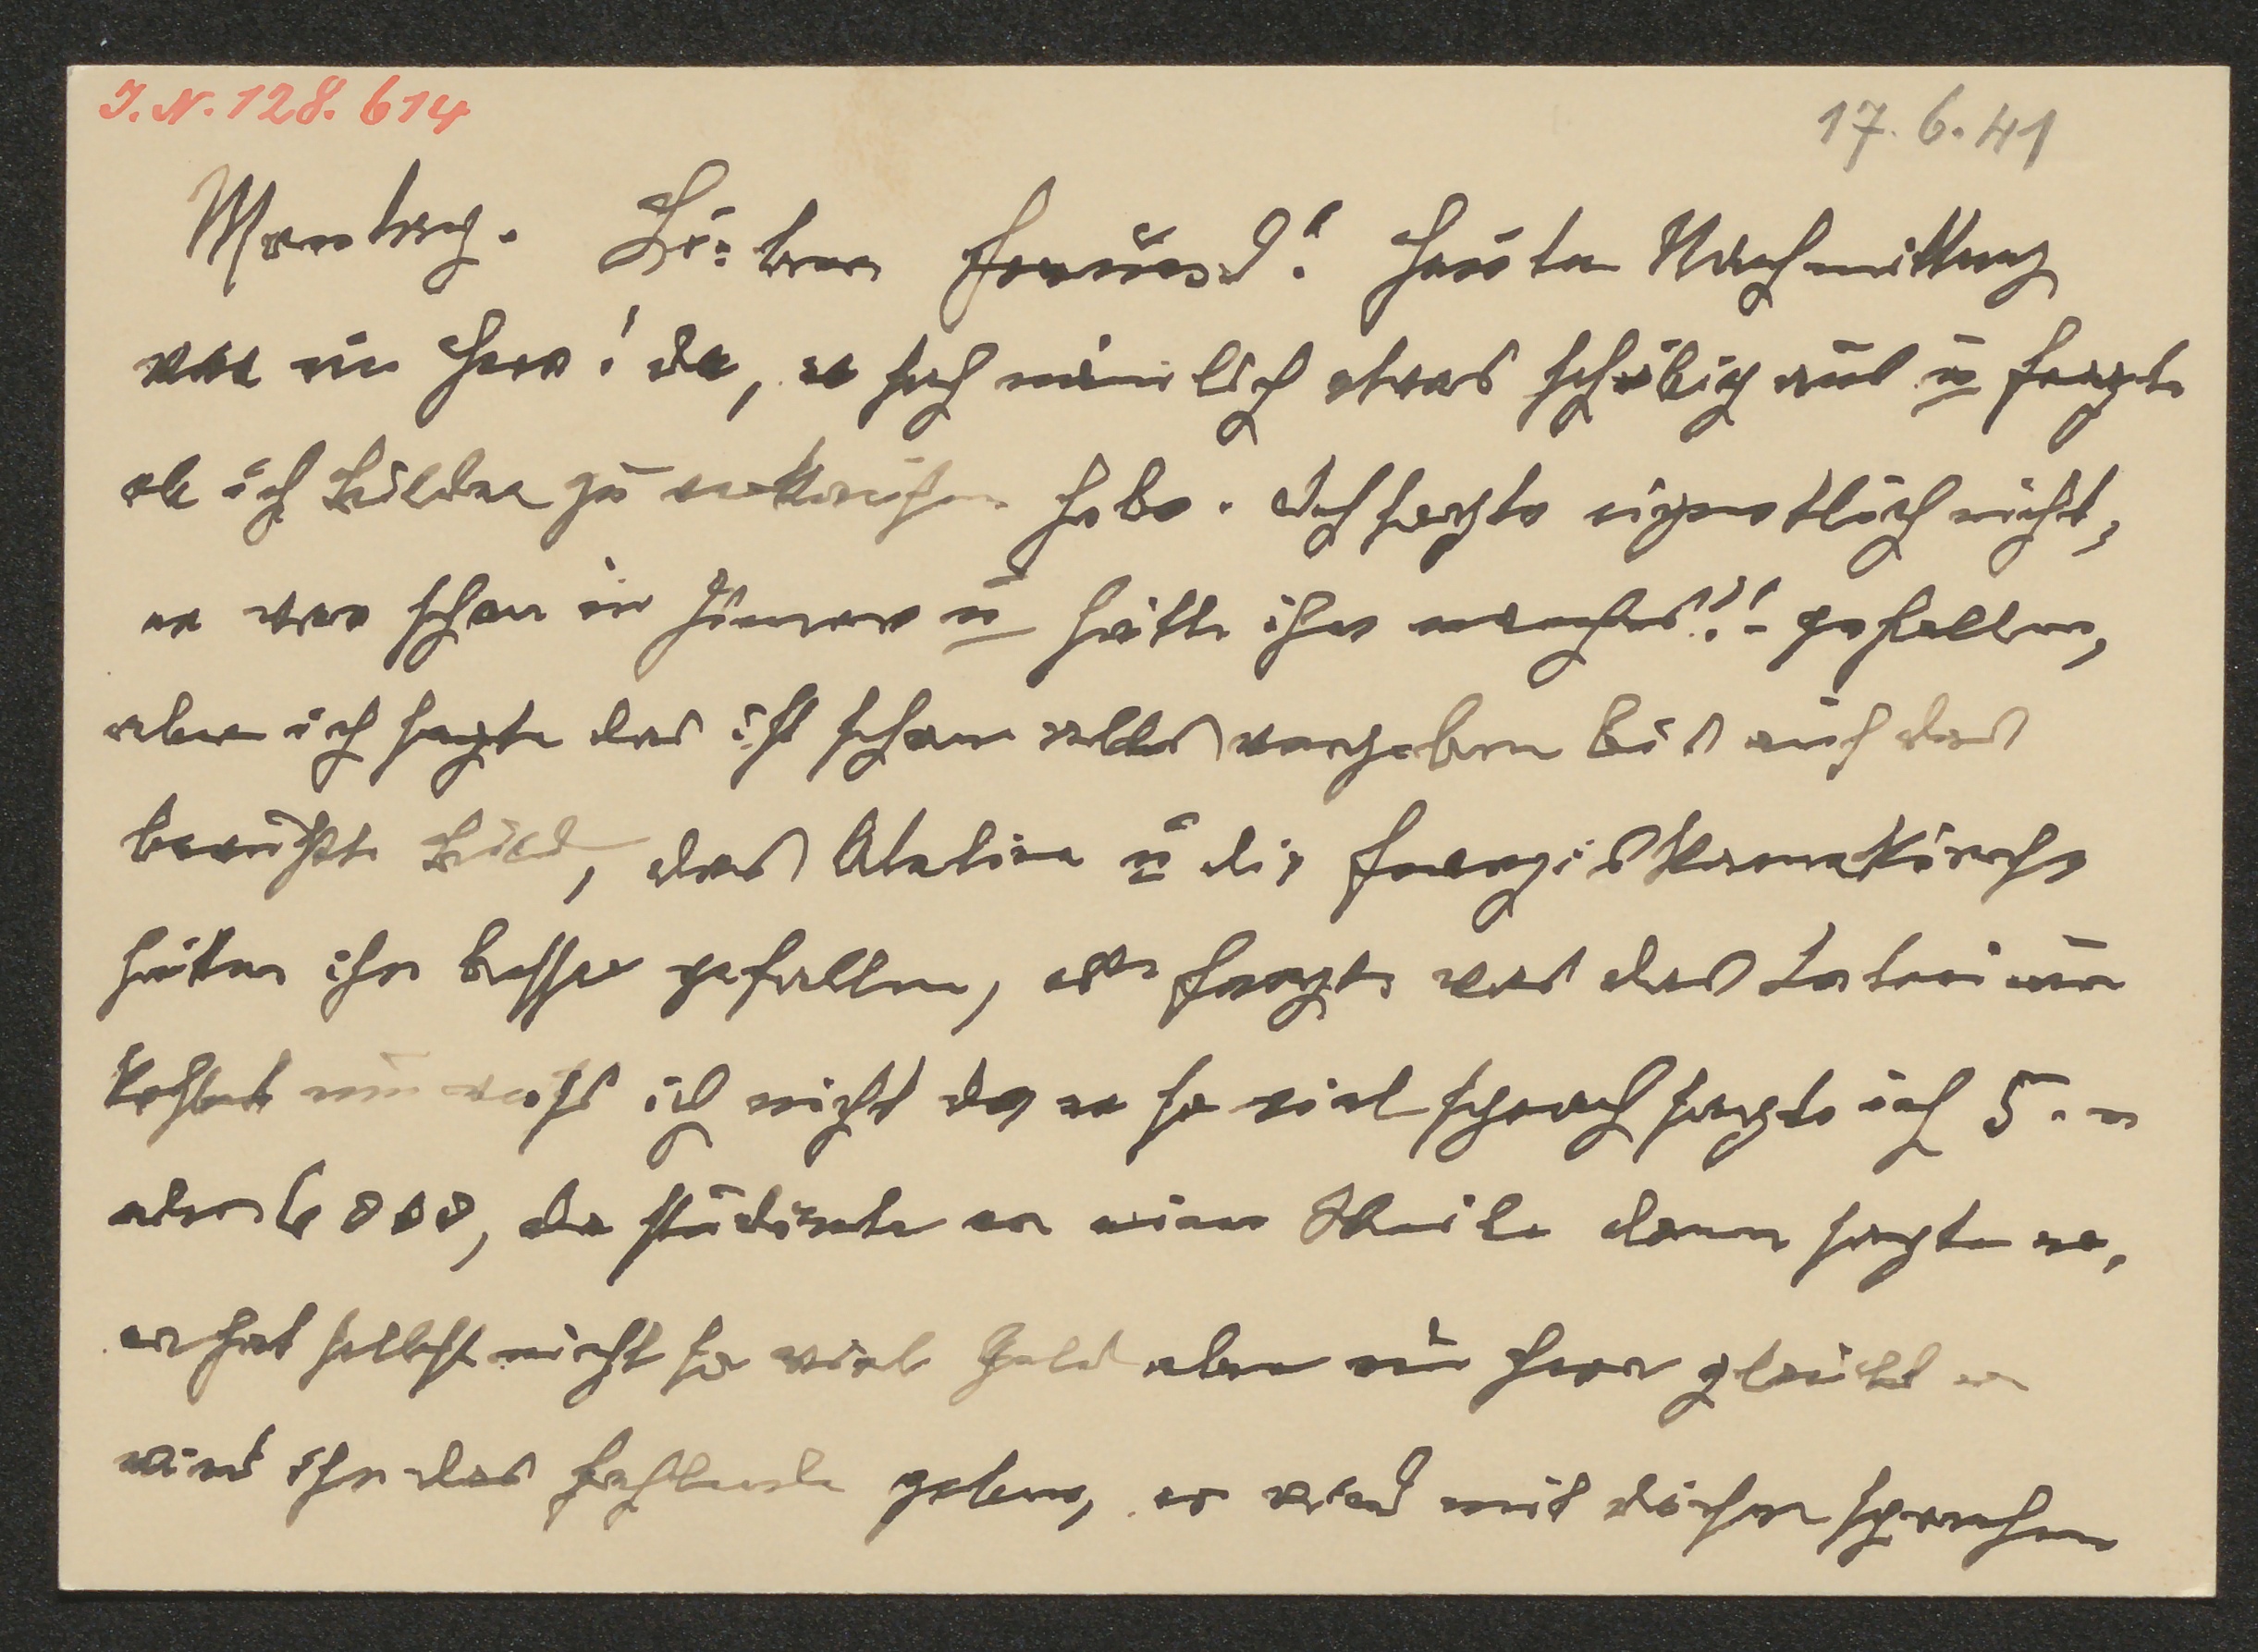 I.N. 128.614
17.6.41
Montag. Lieber Freund! Heute Nachmittag
war ein Herr! da, er sah nämlich etwas schäbig aus u fragte
ob ich Bilder zu verkaufen habe. Ich sagte eigentlich nicht,
er war schon im Zimmer u hätte ihm manches!!- gefallen,
aber ich sagte das ist schon alles vergeben bis auf das
bewußte Bild, das Atelier u die Franziskanerkirche
hätten ihm besser gefallen, er fragte was das Interieur
kostet nun weiß ich nicht da er so viel sprach sagte ich 5.-
oder 6000, da studierte er eine Weile dann sagte er,
er hat selbst nicht so viel Geld aber ein Herr glaubt er
wird ihm das Fehlende geben, er wird mit diesem sprechen